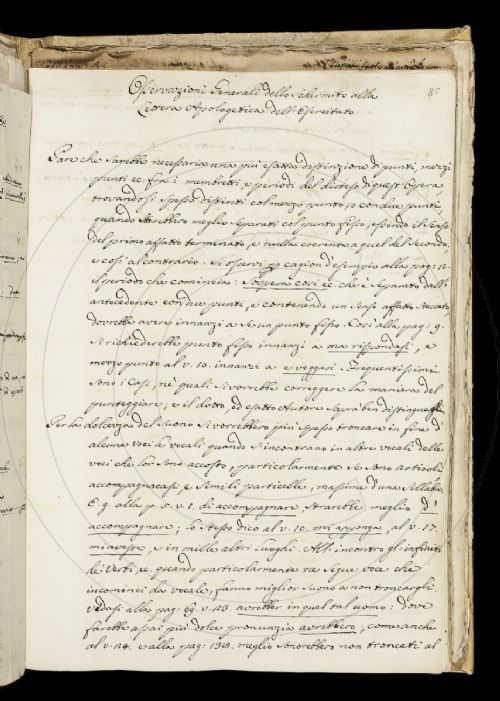 Osservazioni Generali dello Schermito alla
Lettera Apologetica dell'Esercitato
85
Pare che sarebbe necessaria una più esatta distinzione di punti, mezzi
punti ec. fra i membretti, e periodi del disteso di quest'Opera
trovandosi spesso distinti col mezzo punto, o con due punti,
quando starebbero meglio separati col punto fisso, essendo il senso
del primo affatto terminato, e nulla coerente a quel del secondo,
e così al contrario. Si osservi per cagion d'esempio alla pag: 12
il periodo che comincia: Sovvera così ec. che è separato dall'
antecedente con due punti, e contenendo un senso affatto staccato
dovrebbe avere innanzi a se un punto fisso. Così alla pag: 9.
si richiederebbe punto fisso innanzi a ma rispondasi, e
mezzo punto al v. 10. innanzi a e veggasi. Frequentissimi
sono i casi, ne' quali si vorrebbe correggere la maniera del
punteggiare; e il dotto, ed esatto Autore saprà ben distinguergli.
Per la dolcezza del suono si vorrebbero più spesso troncare in fine d'
alcune voci le vocali quando s'incontrano in altre vocali delle
voci che lor sono accosto, particolarmente se sono articoli
accompagnacasi, e simili particelle, massime d'una sillaba
E. g. alla p. 5. v. 1. di accompagnare starebbe meglio d'
accompagnare; lo stesso dico al v. 10. mi aggonga, al v. 17.
mi aveste, e in mille altri luoghi. All'incontro gl'infiniti
de' Verbi, e quando particolarmente ne segue voce che
incominci da vocale, fanno miglior suono a non troncargli
vedasi alla pag: 29. v. 23. avrebber in quel tal uomo: dove
farebbe assai più dolce pronunzia avrebbero; come anche
al v. 24. e alla pag: 139. meglio sonerebbero non troncati al